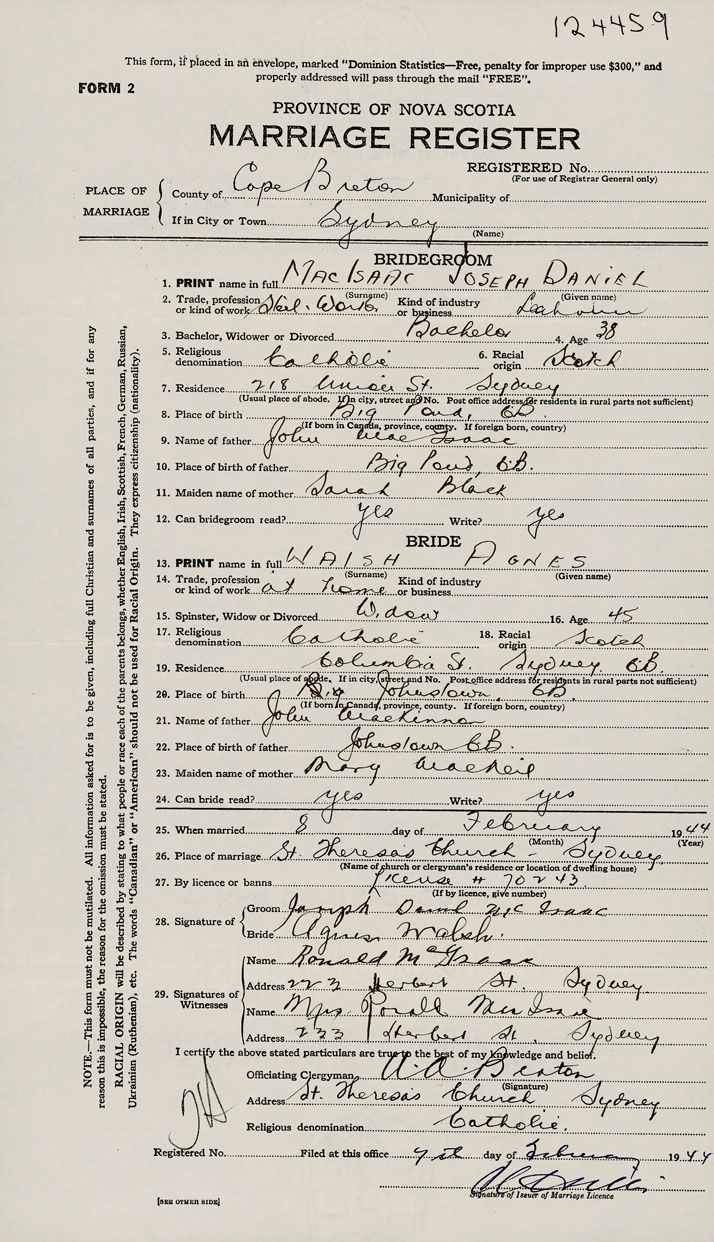 124459
This form, if placed in an envelope, marked "Dominion Statistics—Free, penalty for improper use $300," and
properly addressed will pass through the mail "FREE".
FORM 2
PROVINCE OF NOVA SCOTIA
MARRIAGE REGISTER
REGISTERED No.
(For use of Registrar General only)
PLACE OF MARRIAGE
County of Cape Breton Municipality of
If in City or Town Sydney
(Name)
BRIDEGROOM
1. PRINT name in full MacIsaac Joseph Daniel
(Surname) (Given name)
2. Trade, profession or kind of work Steel Worker Kind of industry or business
3. Bachelor, Widower or Divorced Bachelor 4. Age 38
5. Religious denomination Catholic 6. Racial origin Scotch
7. Residence 218 Union St. Sydney
(Usual place of abode. If in city, street and No. Post office address for residents in rural parts not sufficient)
8. Place of birth Big Pond, CB
(If born in Canada, province, county. If foreign born, country)
9. Name of father John MacIsaac
10. Place of birth of father Big Pond, CB.
11. Maiden name of mother Sarah Black
12. Can bridegroom read? yes Write? yes
BRIDE
13. PRINT name in full Walsh Agnes
(Surname) (Given name)
14. Trade, profession or kind of work at home Kind of industry or business
15. Spinster, Widow or Divorced Widow 16. Age 45
17. Religious denomination Catholic 18. Racial origin Scotch
19. Residence Columbia St. Sydney CB.
(Usual place of abode. If in city, street and No. Post office address for residents in rural parts not sufficient)
20. Place of birth Johnstown, CB
(If born in Canada, province, county. If foreign born, country)
21. Name of father John MacKinnon
22. Place of birth of father Johnstown CB.
23. Maiden name of mother Mary MacNeil
24. Can bride read? yes Write? yes
25. When married 8 day of February 1944
(Month) (Year)
26. Place of marriage St. Theresa's Church - Sydney
(Name of church or clergyman's residence or location of dwelling house)
27. By licence or banns License # 70243
(If by licence, give number)
28. Signature of
Groom Joseph Daniel McIsaac
Bride Agnes Walsh.
29. Signatures of Witnesses
Name Ronald McIsaac
Address 223 Herbert St. Sydney
Name Mrs. Ronald MacIsaac
Address 223 Herbert St, Sydney
I certify the above stated particulars are true to the best of my knowledge and belief.
Officiating Clergyman A. A. Beaton
(Signature)
Address St. Theresa's Church Sydney
Religious denomination Catholic.
Registered No. Filed at this office 9th day of February 1944
Signature of Issuer of Marriage Licence
[SEE OTHER SIDE]
NOTE.—This form must not be mutilated. All information asked for is to be given, including full Christian and surnames of all parties, and if for any
reason this is impossible, the reason for the omission must be stated.
RACIAL ORIGIN will be described by stating to what people or race each of the parents belongs, whether English, Irish, Scottish, French, German, Russian,
Ukrainian (Ruthenian), etc. The words "Canadian" or "American" should not be used for Racial Origin. They express citizenship (nationality).